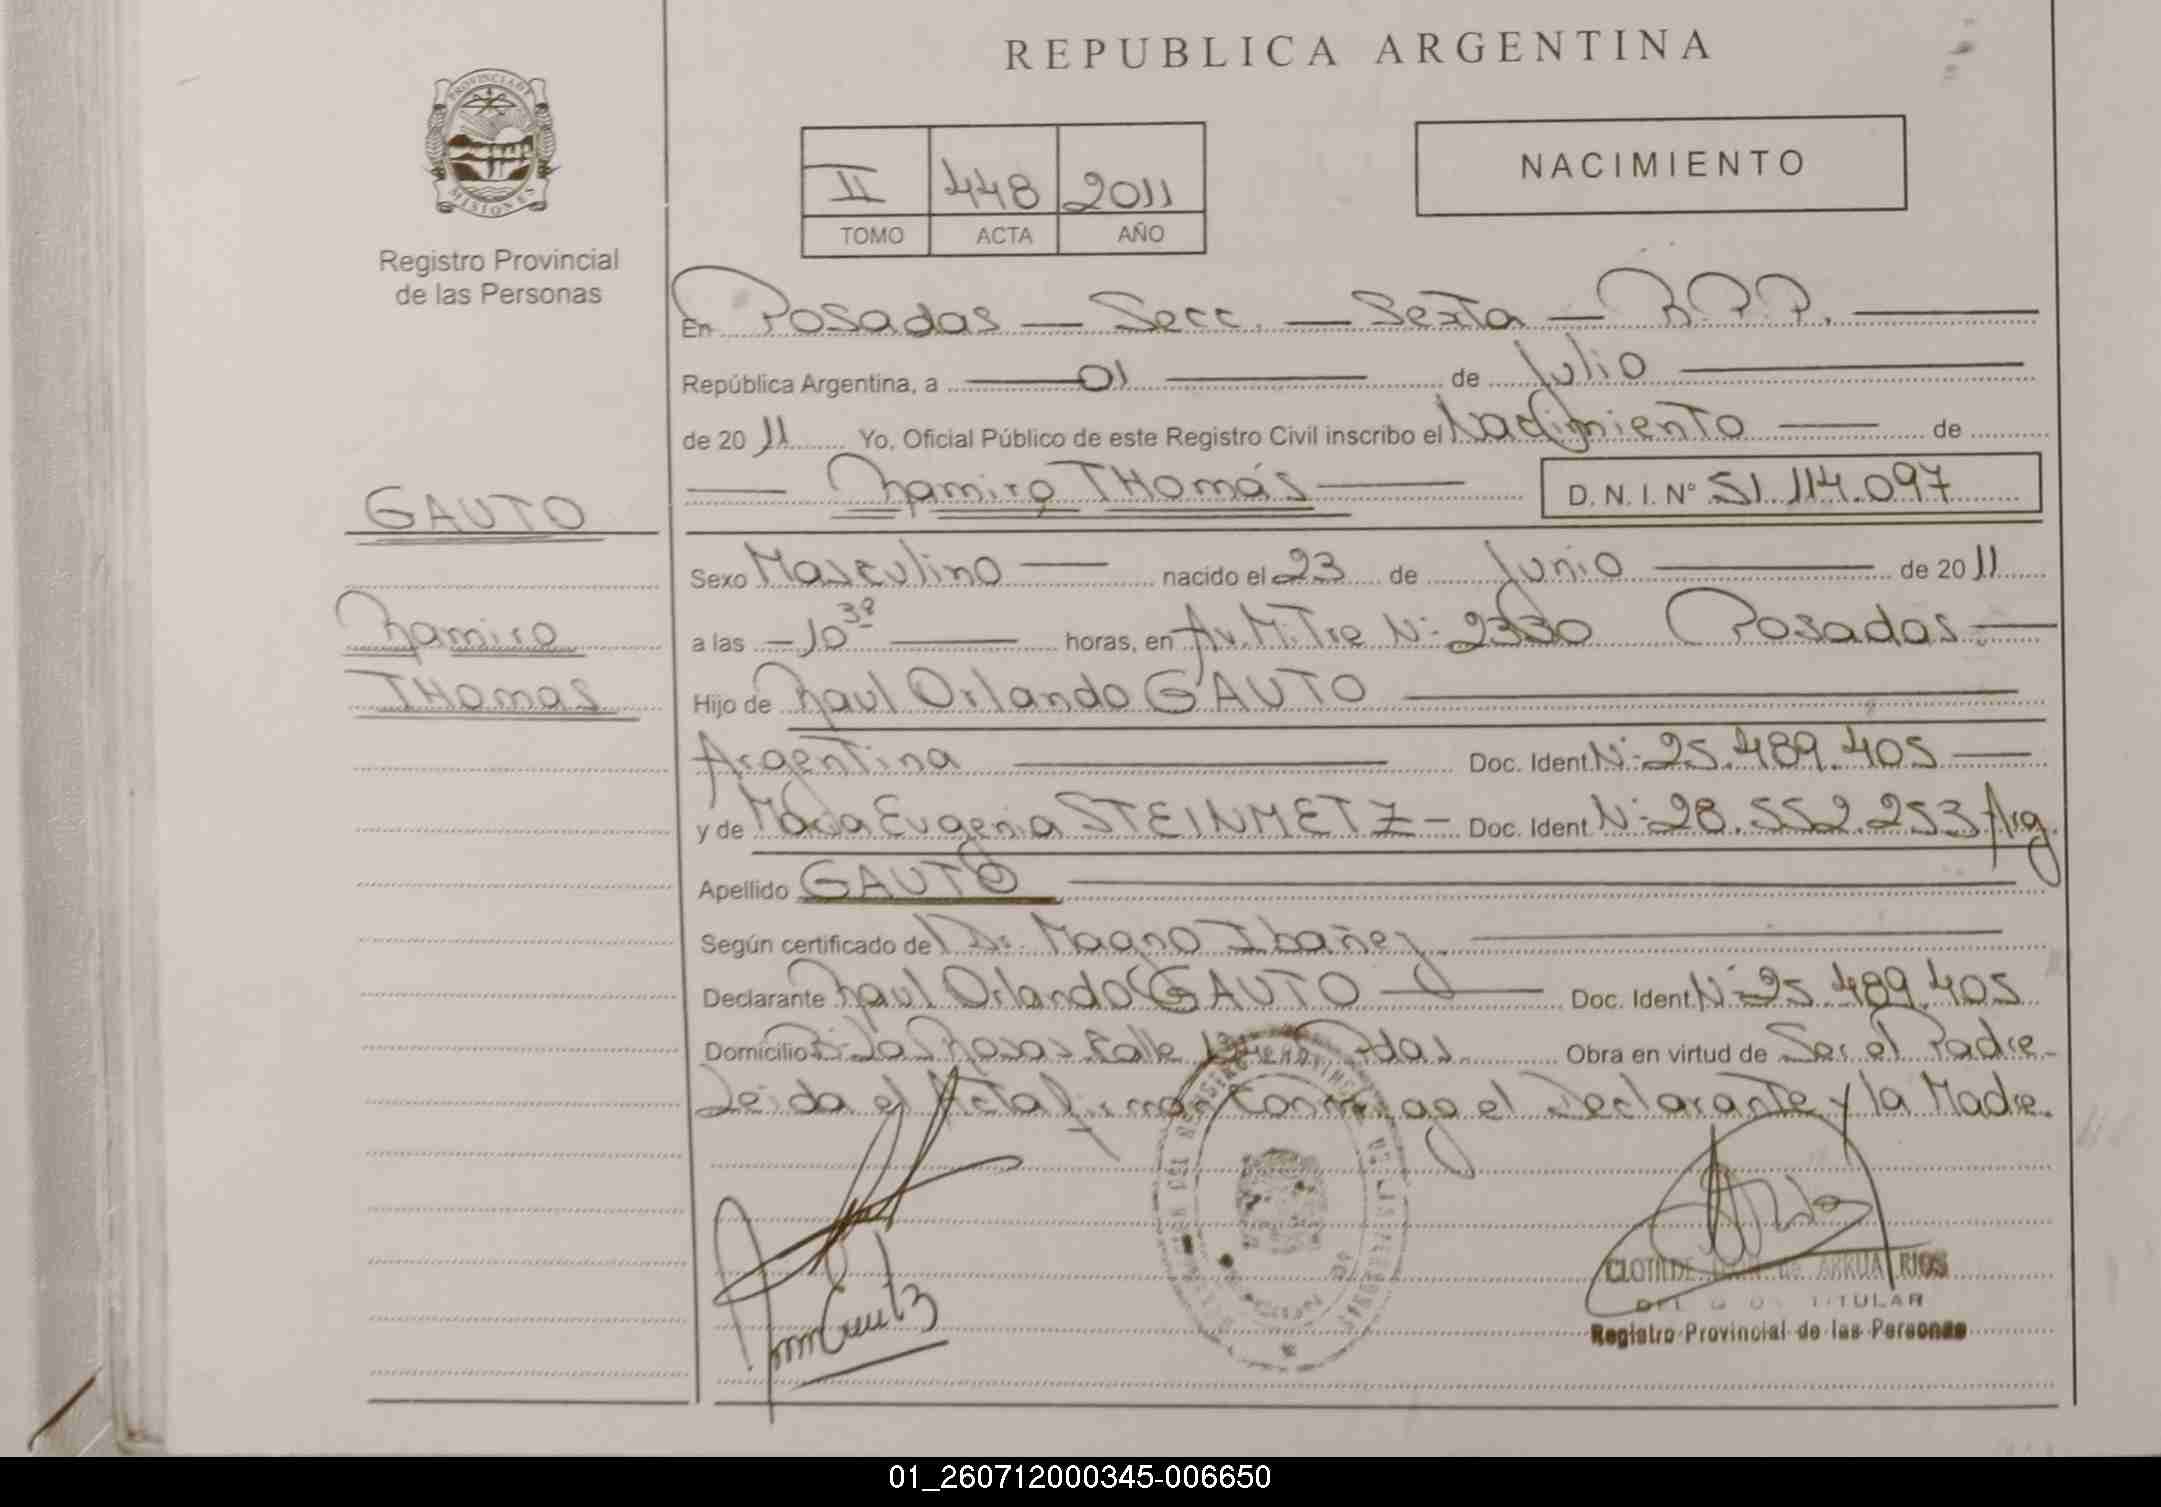 REPUBLICA ARGENTINA
PROVINCIA DE
MISIONES
Registro Provincial
de las Personas
II 448 2011
TOMO ACTA AÑO
NACIMIENTO
En Posadas — Secc. — Sexta — R.P.P. —
República Argentina, a — 01 — de Julio —
de 20 11 Yo, Oficial Público de este Registro Civil inscribo el Nacimiento — de
— Ramiro THomás — D. N. I. Nº 51.114.097
GAUTO
Ramiro
THomas
Sexo Masculino — nacido el 23 de Junio — de 20 11
a las — 10 30 — horas, en Av. Mitre Nº 2330 Posadas —
Hijo de Raul Orlando GAUTO —
Argentina — Doc. Ident. Nº 25.489.405 —
y de Maria Eugenia STEINMETZ — Doc. Ident. Nº 28.552.253 Arg.
Apellido GAUTO —
Según certificado de Dr. Magno Ibañez —
Declarante Raul Orlando GAUTO — Doc. Ident. Nº 25.489.405
Domicilio Rosas Calle Pdas. Obra en virtud de Ser el Padre.
Leida el Acta firman conmigo el Declarante y la Madre.
CLOTILDE de ARRUA RIOS
TITULAR
Registro Provincial de las Personas
01_260712000345-006650